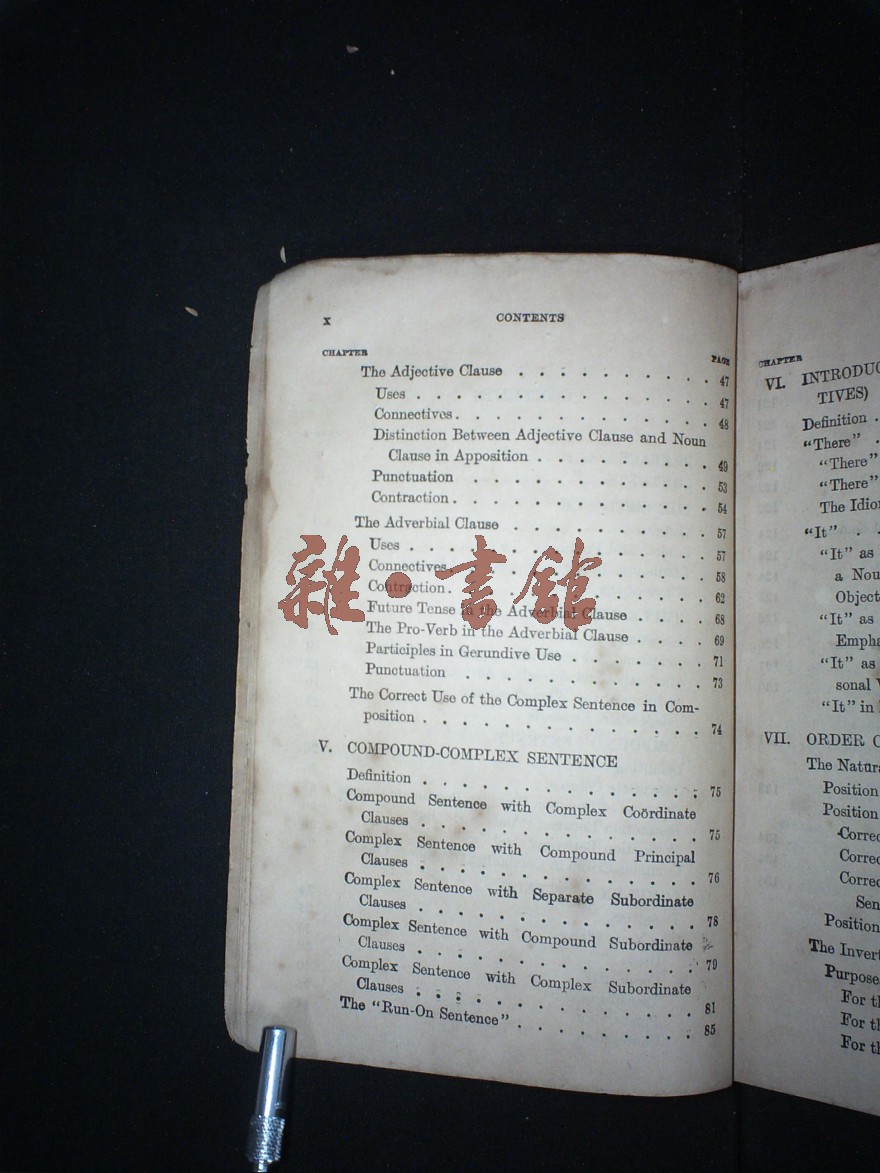 x CONTENTS
CHAPTER PAGE
The Adjective Clause . . . . . . . . . . 47
Uses . . . . . . . . . . . . . 47
Connectives . . . . . . . . . . . 48
Distinction Between Adjective Clause and Noun
Clause in Apposition . . . . . . . . 49
Punctuation . . . . . . . . . . . 53
Contraction . . . . . . . . . . . 54
The Adverbial Clause . . . . . . . . . 57
Uses . . . . . . . . . . . . . 57
Connectives . . . . . . . . . . . 58
Contraction . . . . . . . . . . . 62
Future Tense in the Adverbial Clause . . . . 68
The Pro-Verb in the Adverbial Clause . . . . 69
Participles in Gerundive Use . . . . . . . 71
Punctuation . . . . . . . . . . . 73
The Correct Use of the Complex Sentence in Com-
position . . . . . . . . . . . . 74
V. COMPOUND-COMPLEX SENTENCE
Definition . . . . . . . . . . . . 75
Compound Sentence with Complex Coördinate
Clauses . . . . . . . . . . . . 75
Complex Sentence with Compound Principal
Clauses . . . . . . . . . . . . 76
Complex Sentence with Separate Subordinate
Clauses . . . . . . . . . . . . 78
Complex Sentence with Compound Subordinate
Clauses . . . . . . . . . . . . 79
Complex Sentence with Complex Subordinate
Clauses . . . . . . . . . . . . 81
The "Run-On Sentence" . . . . . . . . 85
CHAPTER
VI. INTRODUC
TIVES)
Definition .
"There" .
"There"
"There"
The Idio
"It" . .
"It" as
a Nou
Object
"It" as
Empha
"It" as
sonal
"It" in
VII. ORDER
The Natura
Position
Position
Correc
Correc
Correc
Sen
Position
The Invert
Purpose
For th
For th
For th
雜·書館